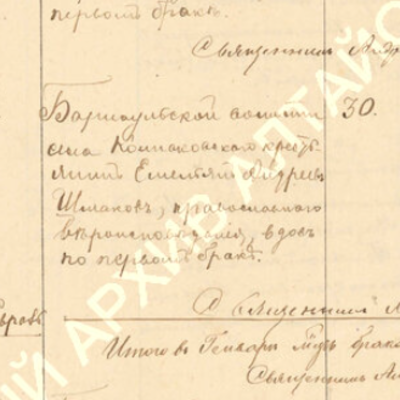 первомъ бракѣ.
Священникъ Андр
Барнаульской волости 30.
села Колпаковскаго кресть
янинъ Емельянъ Андреевъ
Шмаковъ, православнаго
вѣроисповѣданія, вдовъ
по первомъ бракѣ.
Священникъ А
Итого въ Генварѣ м҃цѣ брако
Священникъ Ан